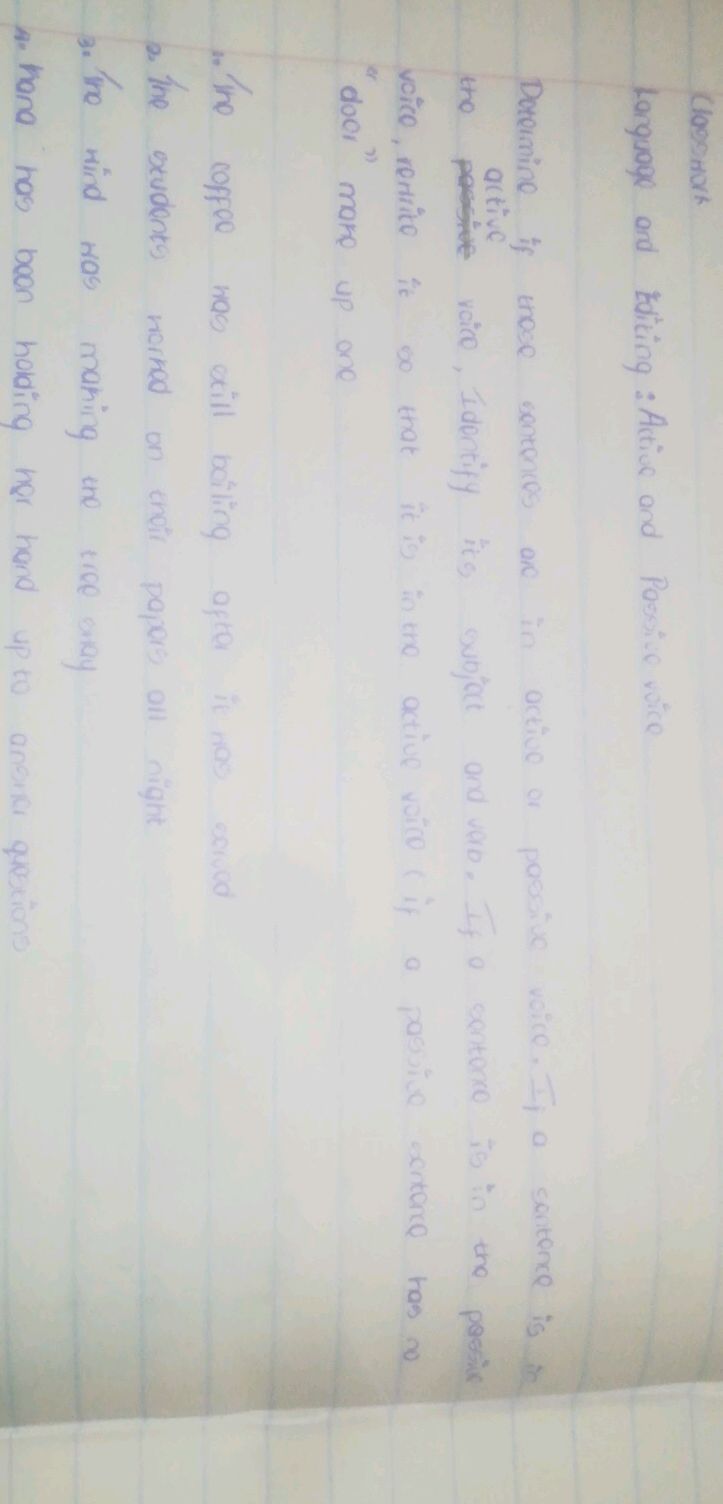 Classwork
Language and Editing : Active and Passive voice
Determine if these sentences are in active or passive voice. If a sentence is in
active
the passive voice, Identify its subject and verb. If a sentence is in the passive
voice, rewrite it so that it is in the active voice (if a passive sentence has no
"doer" make up one
1. The coffee was still boiling after it was served
2. The students worked on their papers all night
3. The wind was making the tree sway
4. has been holding her hand up to answer questions